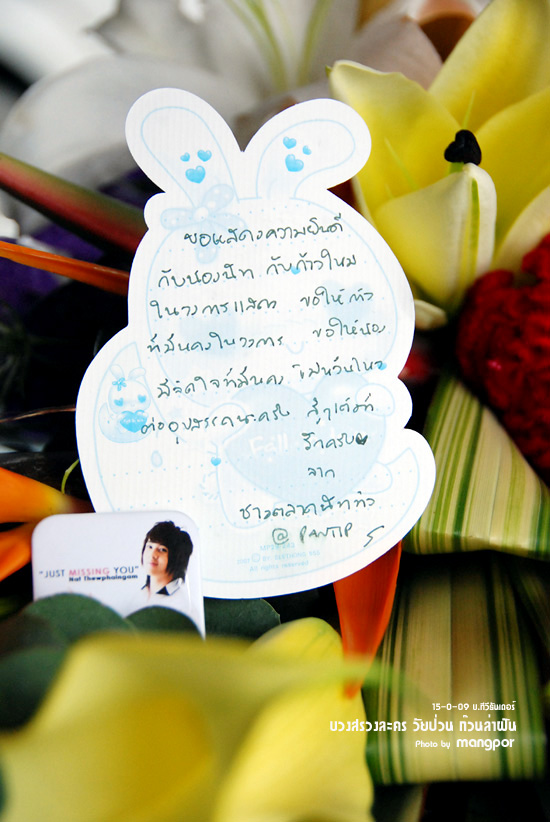 ขอแสดงความยินดี
กับน้องนัท กับก้าวใหม่
ในวงการแสดง ขอให้ก้าว
ที่มั่นคงในวงการ ขอให้น้อง
มีจิตใจที่มั่นคง ไม่หวั่นไหว
ต่ออุปสรรคนะครับ สู้ๆ
รักครับ
จาก
ชาวตลาดนัท
@ PANTIP
"JUST MISSING YOU"
Nat Thewphaingam
15-0-09 บ.ทีวีธันเดอร์
บวงสรวงละคร วัยป่วน ก๊วนล่าฝัน
Photo by mangpor